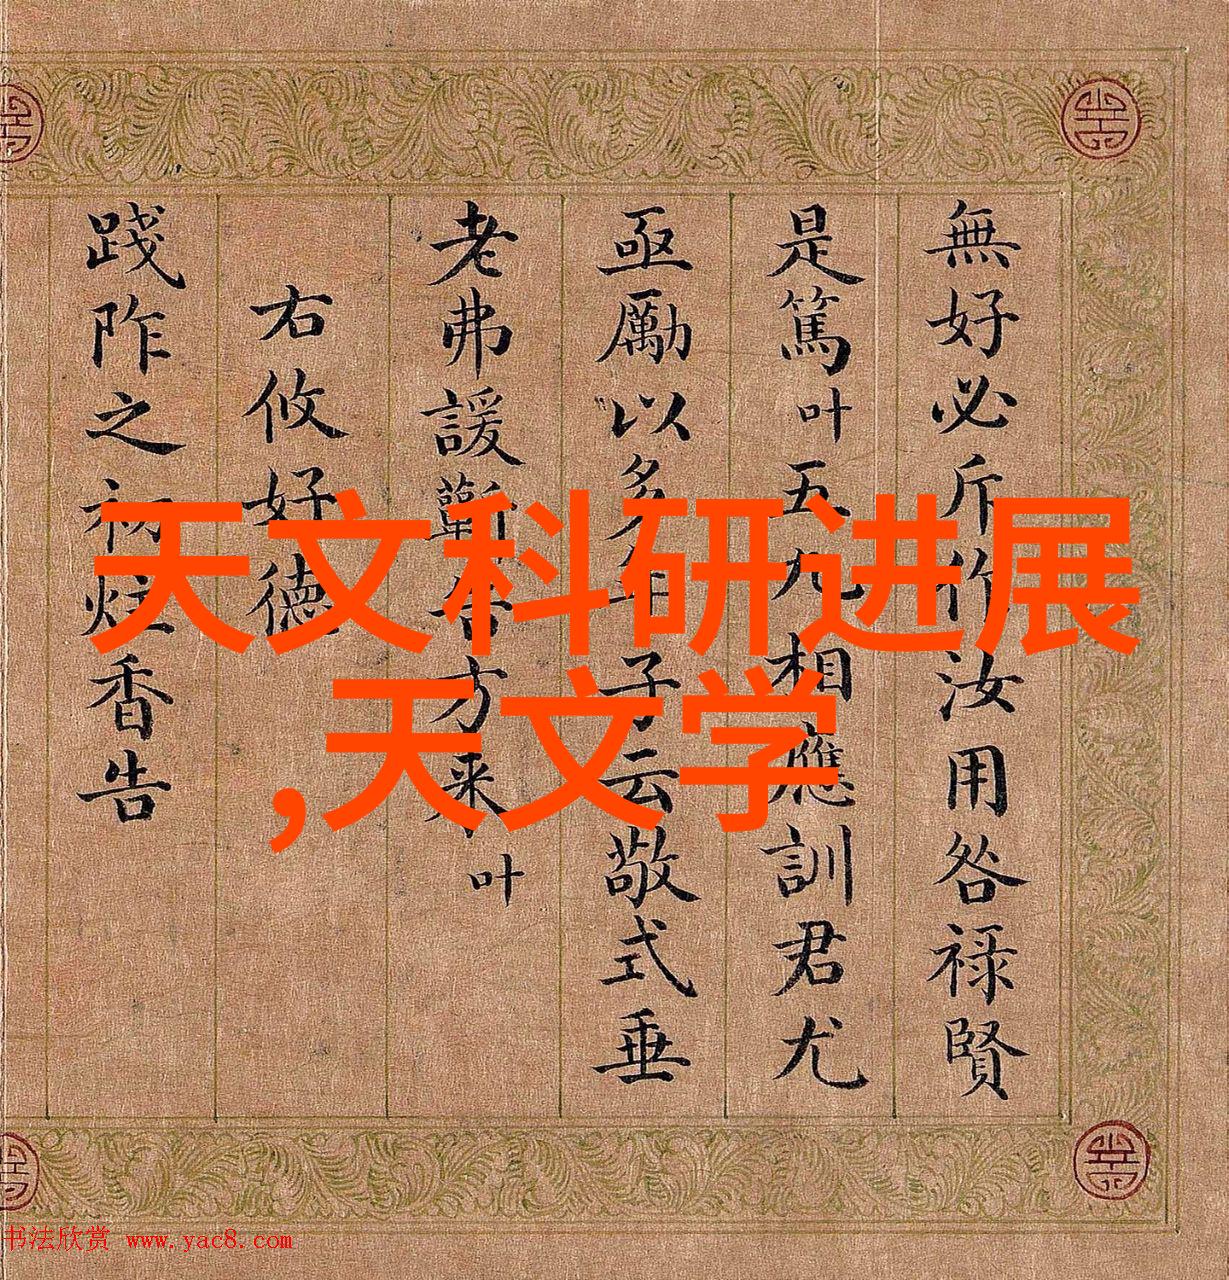 天文科研进展
,天文学
無好必斥作汝用咎祿賢
是篤叶五九相應訓君尤
亟勵以多年子云敬式垂
老弗諼蘄告方来叶
右攸好德
踐阼之初炷香告
书法欣赏 www.yac8.com